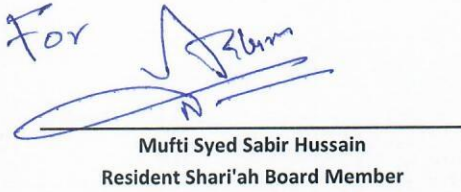 For
Mufti Syed Sabir Hussain
Resident Shari'ah Board Member